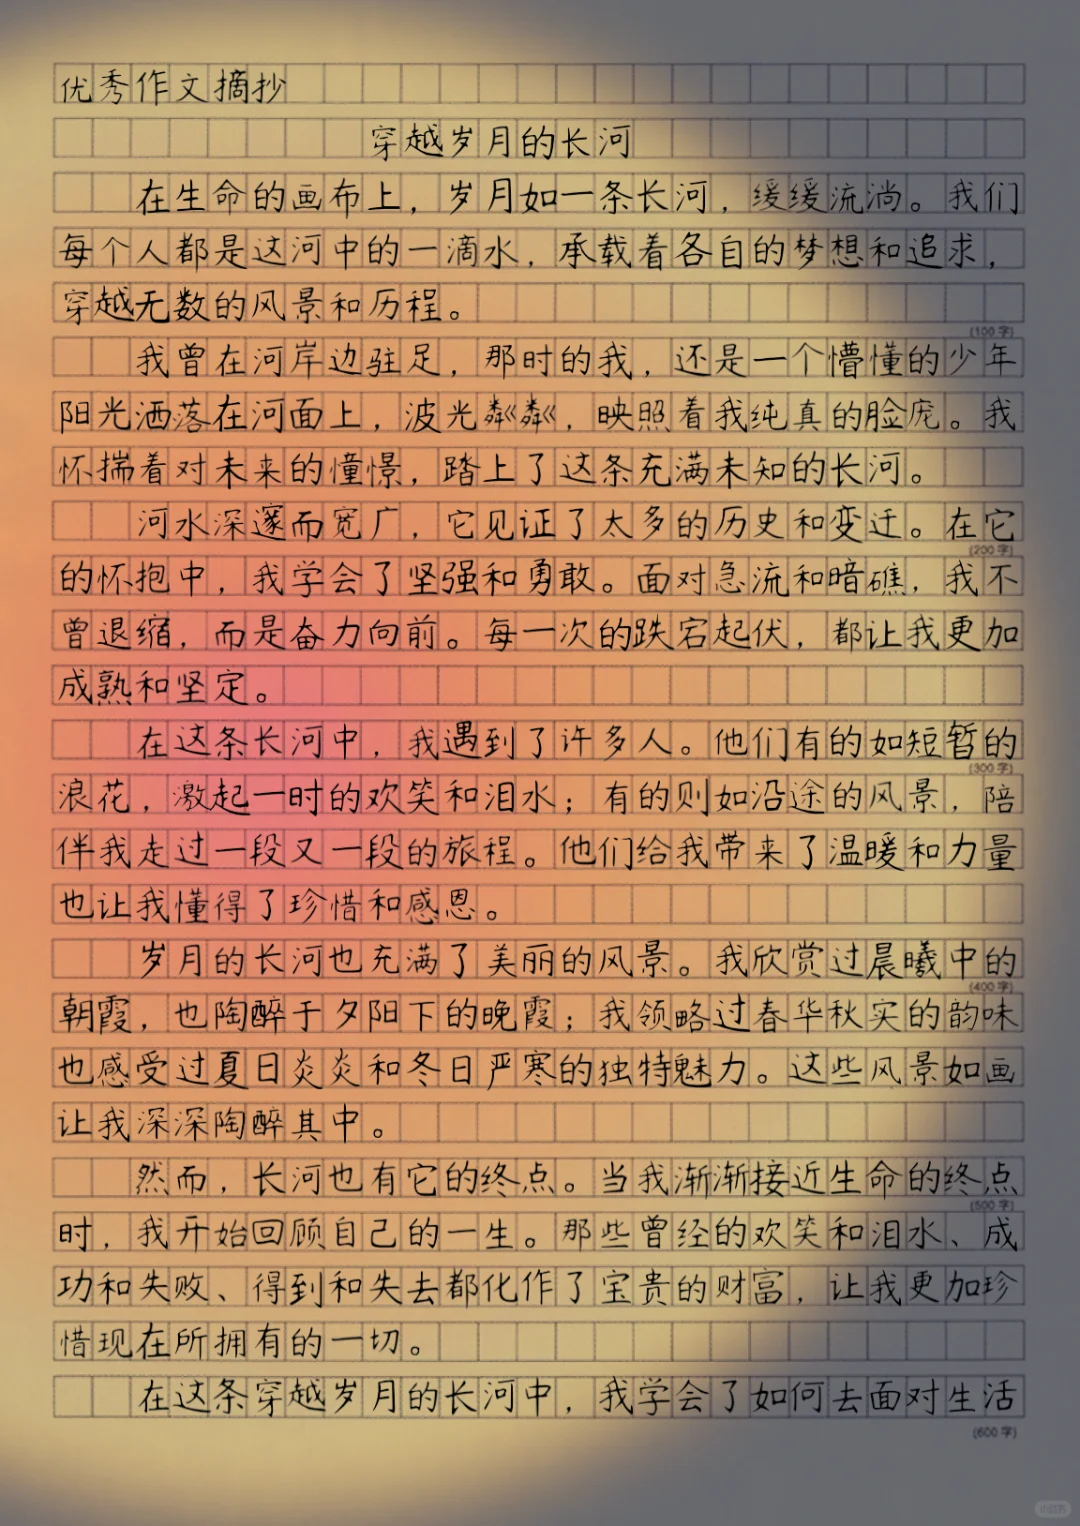 优秀作文摘抄
穿越岁月的长河
在生命的画布上，岁月如一条长河，缓缓流淌。我们
每个人都是这河中的一滴水，承载着各自的梦想和追求，
穿越无数的风景和历程。
(100字)
我曾在河岸边驻足，那时的我，还是一个懵懂的少年
阳光洒落在河面上，波光粼粼，映照着我纯真的脸庞。我
怀揣着对未来的憧憬，踏上了这条充满未知的长河。
河水深邃而宽广，它见证了太多的历史和变迁。在它
(200字)
的怀抱中，我学会了坚强和勇敢。面对急流和暗礁，我不
曾退缩，而是奋力向前。每一次的跌宕起伏，都让我更加
成熟和坚定。
在这条长河中，我遇到了许多人。他们有的如短暂的
(300字)
浪花，激起一时的欢笑和泪水；有的则如沿途的风景，陪
伴我走过一段又一段的旅程。他们给我带来了温暖和力量
也让我懂得了珍惜和感恩。
岁月的长河也充满了美丽的风景。我欣赏过晨曦中的
(400字)
朝霞，也陶醉于夕阳下的晚霞；我领略过春华秋实的韵味
也感受过夏日炎炎和冬日严寒的独特魅力。这些风景如画
让我深深陶醉其中。
然而，长河也有它的终点。当我渐渐接近生命的终点
(500字)
时，我开始回顾自己的一生。那些曾经的欢笑和泪水、成
功和失败、得到和失去都化作了宝贵的财富，让我更加珍
惜现在所拥有的一切。
在这条穿越岁月的长河中，我学会了如何去面对生活
(600字)
小红书